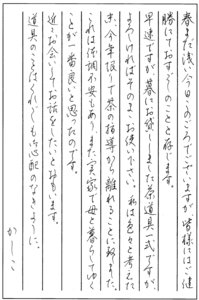 春まだ浅い今日このごろでございますが、皆様にはご健
勝にておすごしのことと存じます。
早速ですが、暮にお貸ししました茶道具一式ですが、
よろしければそのままお使い下さい。私は色々と考えた
末、今年限りで茶の指導から離れることに致しました。
これは体調不安もあり、また実家で母と暮らしてゆく
ことが一番良いと思ったのです。
近々お会いしてお話をしたいと思います。
道具のことはくれぐれも心配のなきように。
かしこ